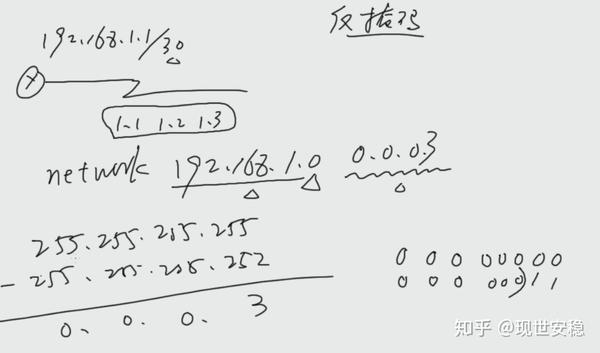 反掩码
192.168.1.1/30
1.1 1.2 1.3
network 192.168.1.0 0.0.0.3
255.255.255.255
- 255.255.255.252
0. 0. 0. 3
0 0 0 00000
0 0 0 00011
知乎 @现世安稳